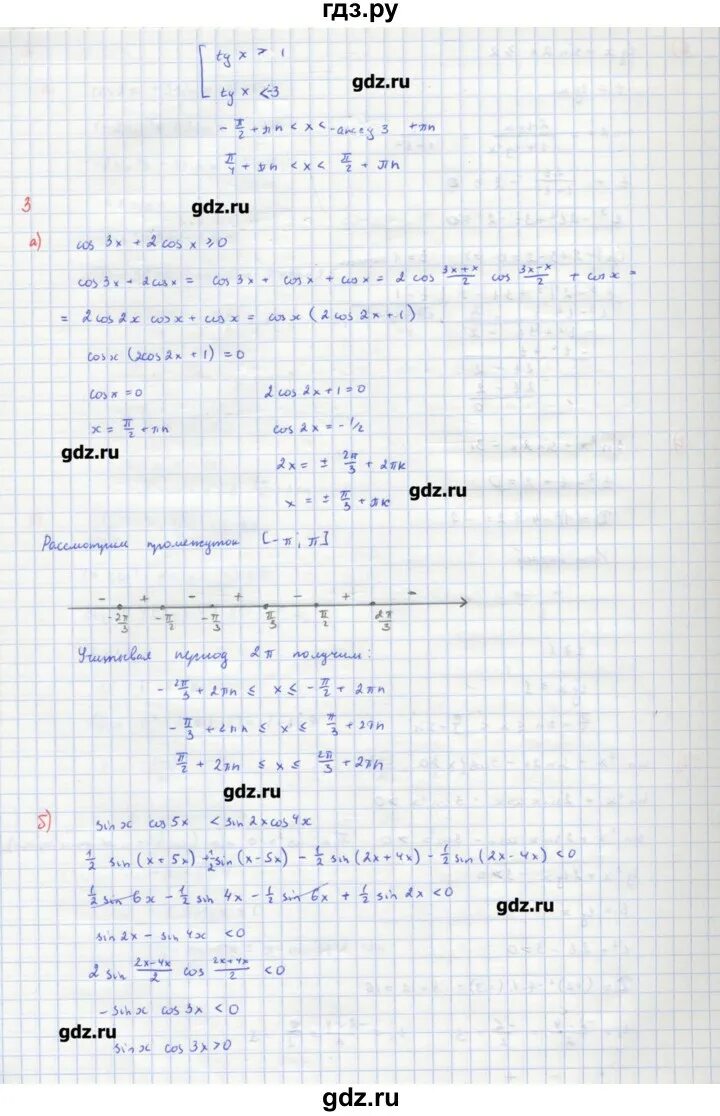 гдз.ру
tg x > 1
gdz.ru
tg x < -3
-π/2 + πn < x < -arctg 3 + πn
π/4 + πn < x < π/2 + πn
3
gdz.ru
а) cos 3x + 2 cos x ≥ 0
cos 3x + 2cos x = cos 3x + cos x + cos x = 2 cos (3x+x)/2 cos (3x-x)/2 + cos x =
= 2 cos 2x cos x + cos x = cos x (2 cos 2x + 1)
cos x (2cos 2x + 1) = 0
cos x = 0 2 cos 2x + 1 = 0
x = π/2 + πn cos 2x = -1/2
gdz.ru
2x = ± 2π/3 + 2πk
gdz.ru
x = ± π/3 + πk
Рассмотрим промежуток [-π; π]
- + - + - + -
-2π/3 -π/2 -π/3 π/3 π/2 2π/3
Учитывая период 2π получим:
-2π/3 + 2πn ≤ x ≤ -π/2 + 2πn
-π/3 + 2πn ≤ x ≤ π/3 + 2πn
π/2 + 2πn ≤ x ≤ 2π/3 + 2πn
gdz.ru
б) sin x cos 5x < sin 2x cos 4x
1/2 sin (x + 5x) + 1/2 sin (x - 5x) - 1/2 sin (2x + 4x) - 1/2 sin (2x - 4x) < 0
1/2 sin 6x - 1/2 sin 4x - 1/2 sin 6x + 1/2 sin 2x < 0
gdz.ru
sin 2x - sin 4x < 0
2 sin (2x-4x)/2 cos (2x+4x)/2 < 0
- sin x cos 3x < 0
gdz.ru
sin x cos 3x > 0
gdz.ru